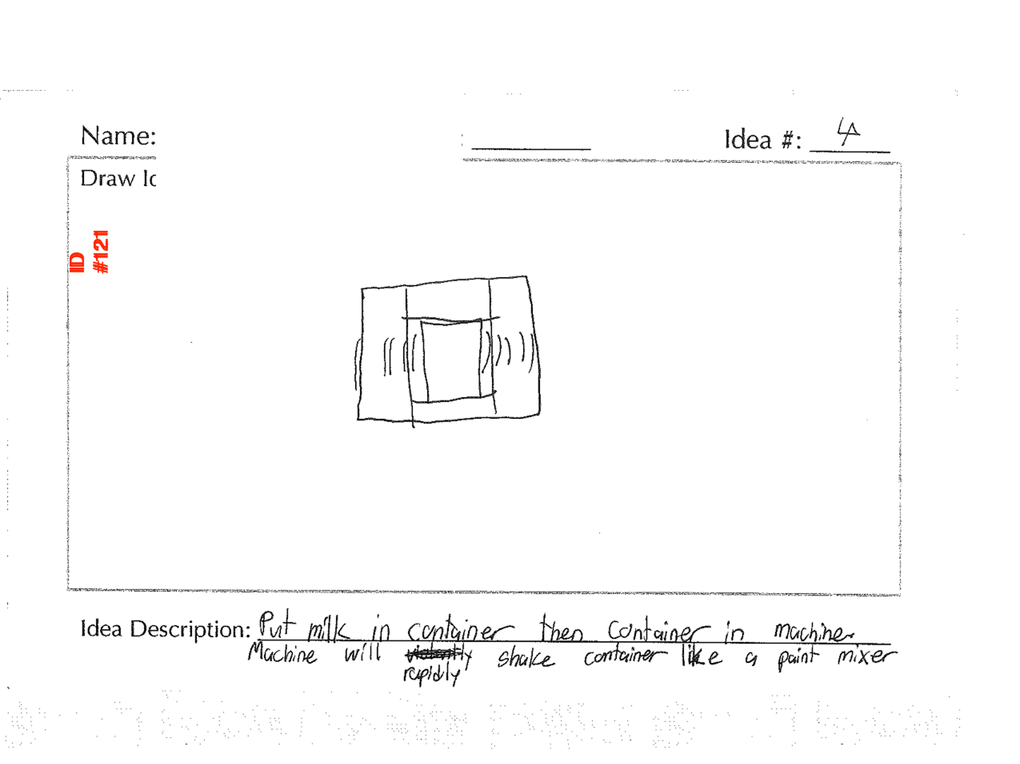 Name:
Idea #: 4
Draw Ic
ID
#121
Idea Description: Put milk in container then container in machine.
Machine will violently shake container like a paint mixer
rapidly